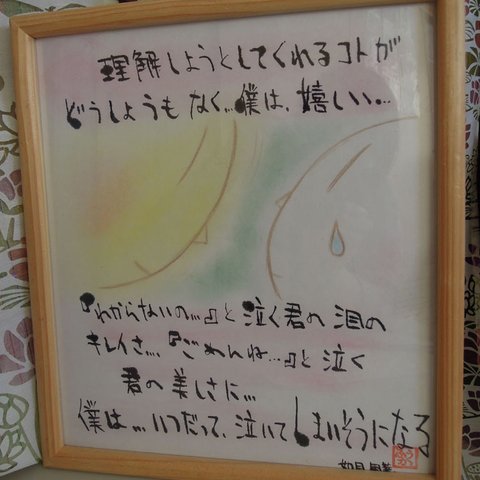 理解しようとしてくれるコトが
どうしようもなく…僕は、嬉しい…
『わからないの…』と泣く君の涙の
キレイさ…『ごめんね…』と泣く
君の美しさに…
僕は…いつだって、泣いてしまいそうになる